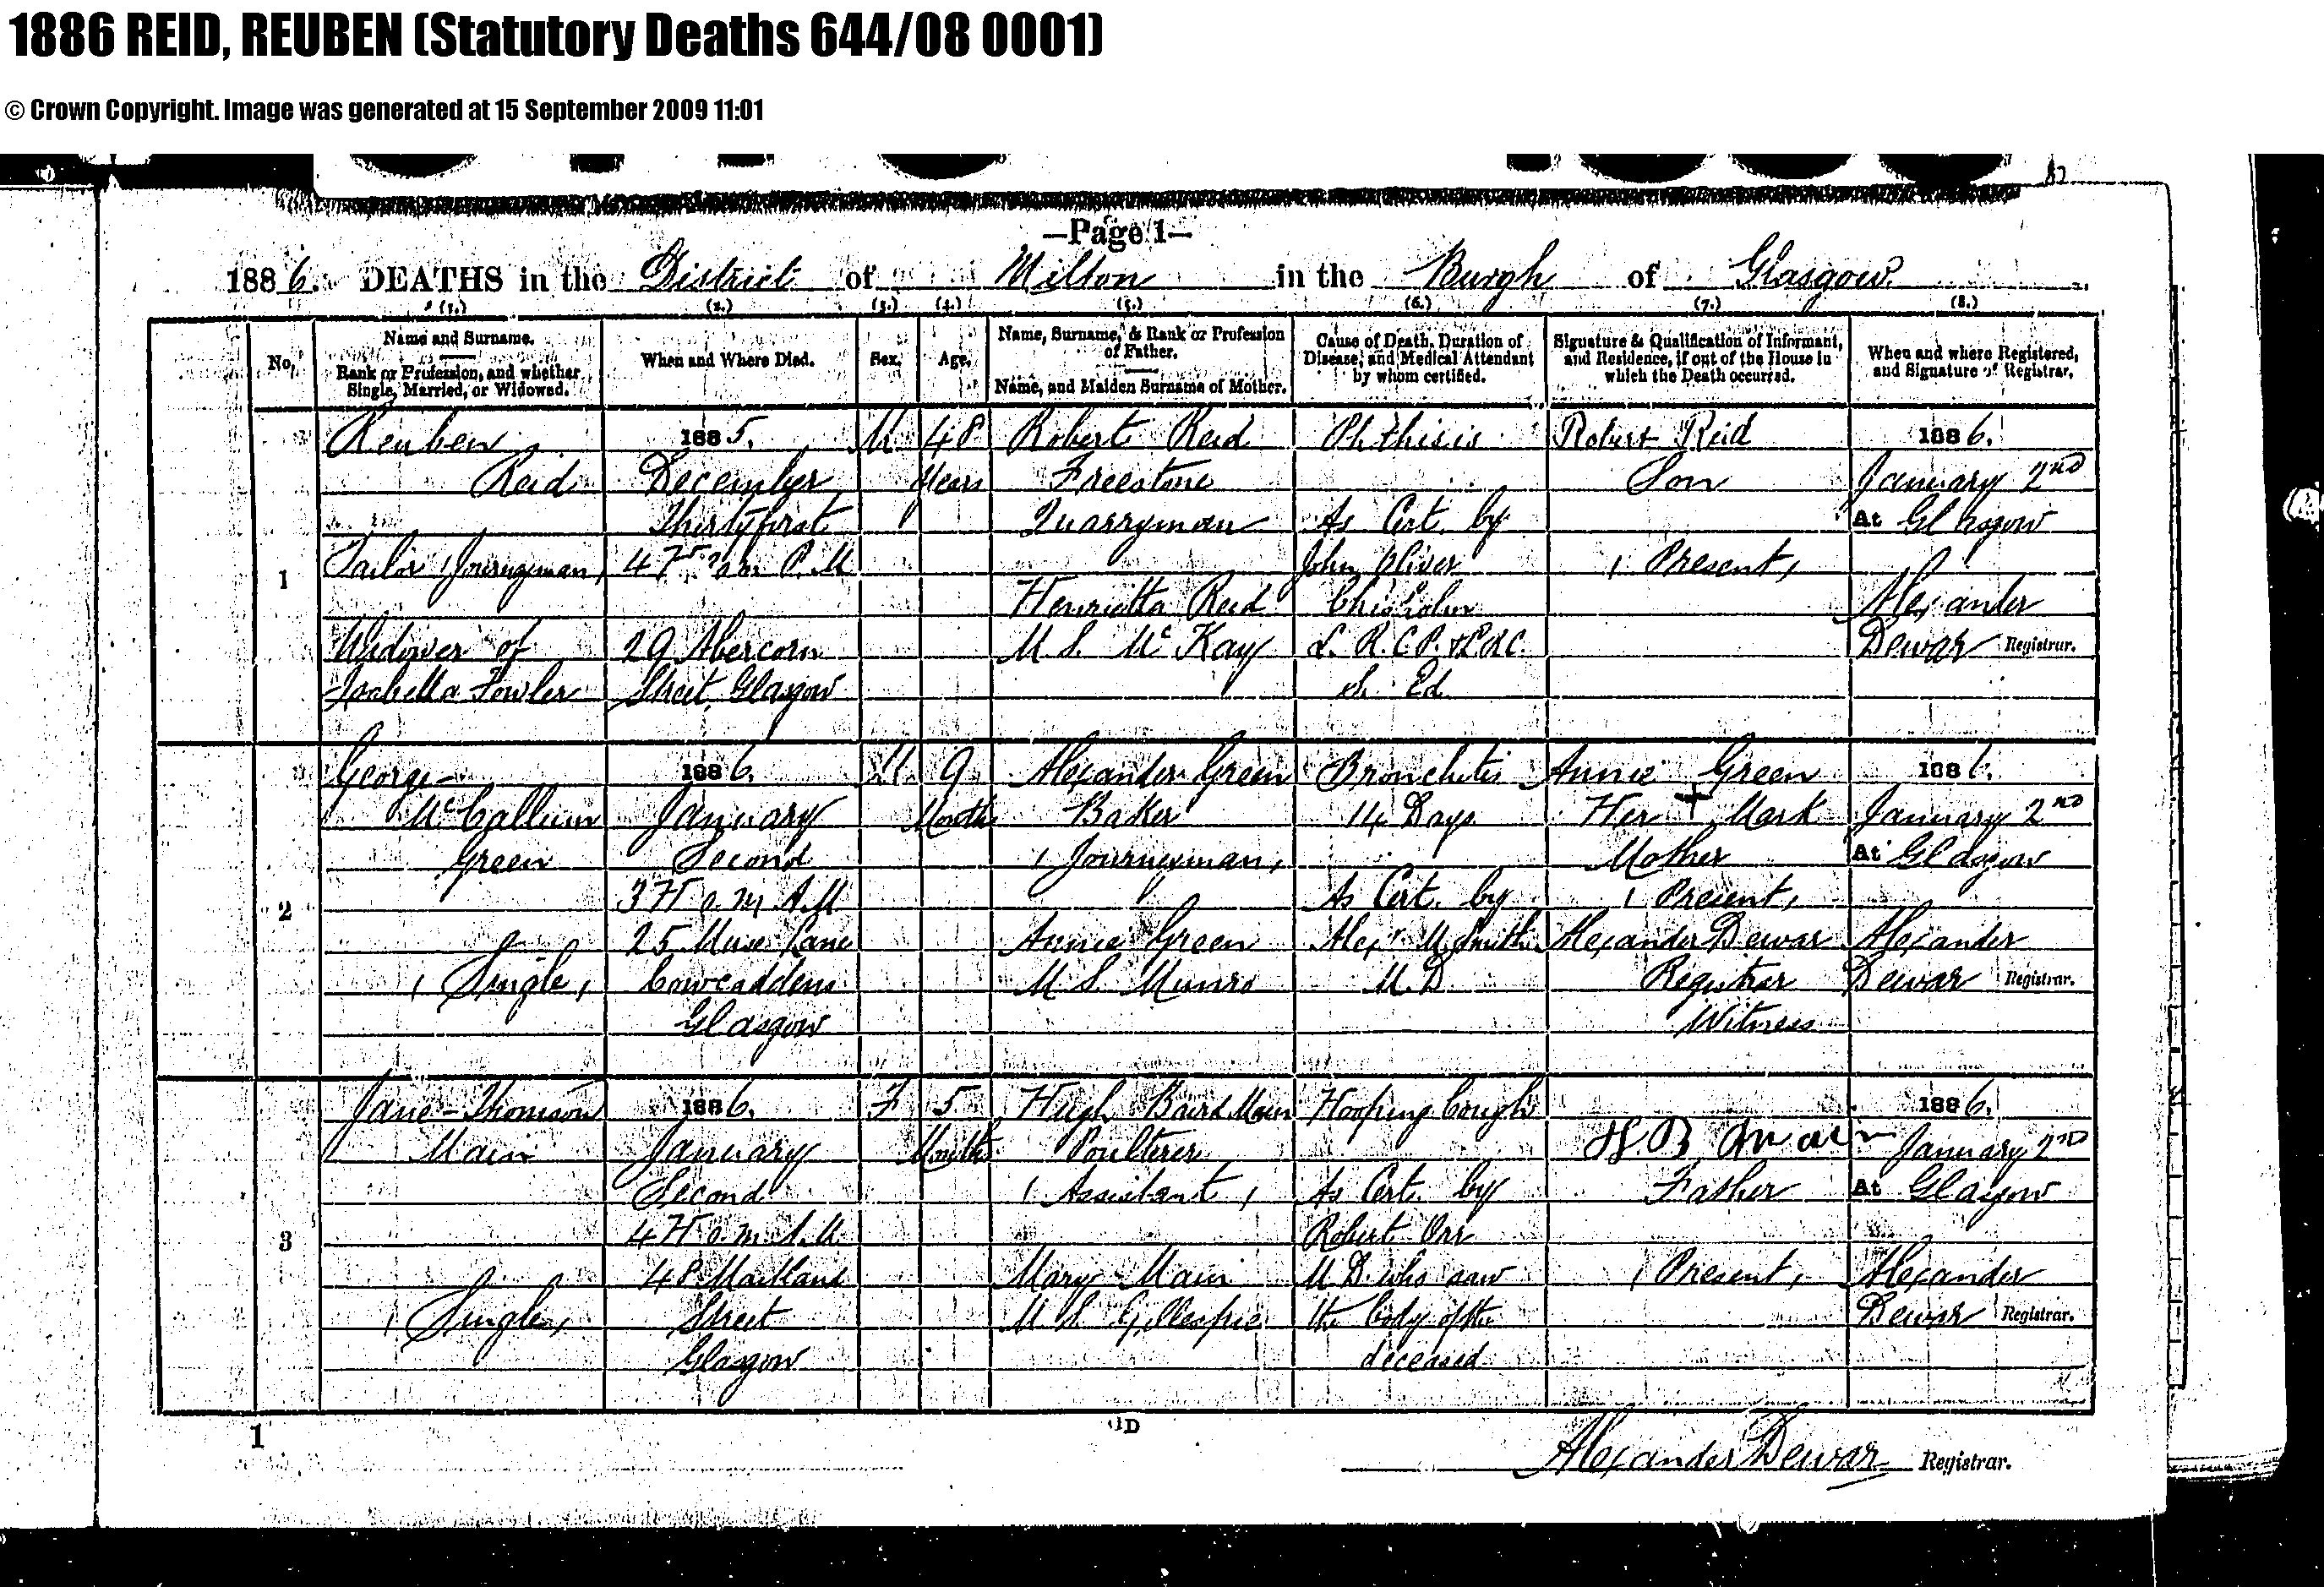 1886 REID, REUBEN (Statutory Deaths 644/08 0001)
© Crown Copyright. Image was generated at 15 September 2009 11:01
—Page 1—
1886. DEATHS in the District of Milton in the Burgh of Glasgow
(1.) (2.) (3.) (4.) (5.) (6.) (7.) (8.)
No.
Name and Surname.
Rank or Profession, and whether
Single, Married, or Widowed.
When and Where Died.
Sex.
Age.
Name, Surname, & Rank or Profession
of Father.
Name, and Maiden Surname of Mother.
Cause of Death, Duration of
Disease, and Medical Attendant
by whom certified.
Signature & Qualification of Informant,
and Residence, if out of the House in
which the Death occurred.
When and where Registered,
and Signature of Registrar.
1
Reuben
Reid
Tailor (Journeyman)
Widower of
Isabella Fowler
1885.
December
Thirtyfirst
4 H P.M
29 Abercorn
Street Glasgow
M
48
Years
Robert Reid
Freestone
Quarryman
Henrietta Reid
M.S. McKay
Phthisis
As Cert. by
John Oliver
Chisholm
L.R.C.P. & L.R.C.
S. Ed.
Robert Reid
Son
(Present)
1886.
January 2nd
At Glasgow
Alexander
Dewar Registrar.
2
George
McCallum
Green
(Single)
1886.
January
Second
3 H 0 m A.M
25 Muse Lane
Cowcaddens
Glasgow
M
9
Months
Alexander Green
Baker
(Journeyman)
Annie Green
M.S. Munro
Bronchitis
14 Days
As Cert. by
Alexr M. Smith
M.D
Annie Green
Her + Mark
Mother
(Present)
Alexander Dewar
Registrar
Witness
1886.
January 2nd
At Glasgow
Alexander
Dewar Registrar.
3
Jane Thomson
Main
(Single)
1886.
January
Second
4 H 0 m A.M.
48 Maitland
Street
Glasgow
F
5
Months
Hugh Baird Main
Poulterer
(Assistant)
Mary Main
M.S. Gillespie
Hooping Cough
As Cert. by
Robert Orr
M.D. who saw
the body of the
deceased
H. B Main
Father
(Present)
1886.
January 2nd
At Glasgow
Alexander
Dewar Registrar.
1
Alexander Dewar Registrar.